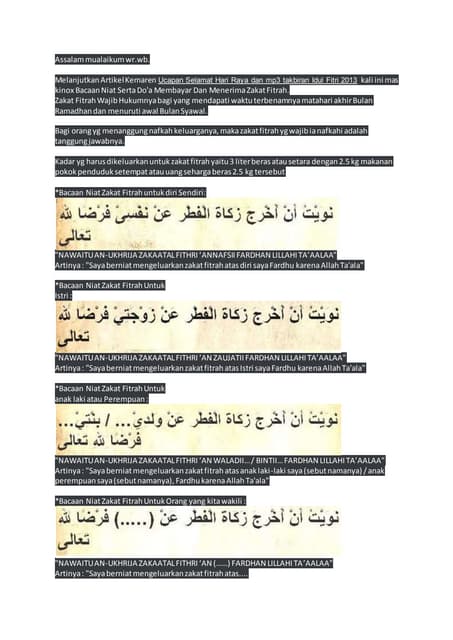 Assalam mualaikum wr.wb.
Melanjutkan Artikel Kemaren Ucapan Selamat Hari Raya dan mp3 takbiran Idul Fitri 2013 kali ini mas
kinox Bacaan Niat Serta Do'a Membayar Dan Menerima Zakat Fitrah.
Zakat Fitrah Wajib Hukumnya bagi yang mendapati waktu terbenamnya matahari akhir Bulan
Ramadhan dan menuruti awal Bulan Syawal.
Bagi orang yg menanggung nafkah keluarganya, maka zakat fitrah yg wajib ia nafkahi adalah
tanggung jawabnya.
Kadar yg harus dikeluarkan untuk zakat fitrah yaitu 3 liter beras atau setara dengan 2.5 kg makanan
pokok penduduk setempat atau uang seharga beras 2.5 kg tersebut
*Bacaan Niat Zakat Fitrah untuk diri Sendiri:
نويْتُ أنْ أخْرج زكاة الْفطْر عنْ نفْسىْ فرْضا لله
تعالى
"NAWAITU AN-UKHRIJA ZAKAATAL FITHRI 'ANNAFSII FARDHAN LILLAHI TA'AALAA"
Artinya : "Saya berniat mengeluarkan zakat fitrah atas diri saya Fardhu karena Allah Ta'ala"
*Bacaan Niat Zakat Fitrah Untuk
Istri :
نويْتُ أنْ أخْرج زكاة الْفطْر عنْ زوْجتيْ فرْضا لله
تعالى
"NAWAITU AN-UKHRIJA ZAKAATAL FITHRI 'AN ZAUJATII FARDHAN LILLAHI TA'AALAA"
Artinya : "Saya berniat mengeluarkan zakat fitrah atas Istri saya Fardhu karena Allah Ta'ala"
*Bacaan Niat Zakat Fitrah Untuk
anak laki atau Perempuan :
نويْتُ أنْ أخْرج زكاة الْفطْر عنْ ولديْ... / بنْتيْ...
فرْضا لله تعالى
"NAWAITU AN-UKHRIJA ZAKAATAL FITHRI 'AN WALADII... / BINTII... FARDHAN LILLAHI TA'AALAA"
Artinya : "Saya berniat mengeluarkan zakat fitrah atas anak laki-laki saya (sebut namanya) / anak
perempuan saya (sebut namanya), Fardhu karena Allah Ta'ala"
*Bacaan Niat Zakat Fitrah Untuk Orang yang kita wakili :
نويْتُ أنْ أخْرج زكاة الْفطْر عنْ (.....) فرْضا لله
تعالى
"NAWAITU AN-UKHRIJA ZAKAATAL FITHRI 'AN (......) FARDHAN LILLAHI TA'AALAA"
Artinya : "Saya berniat mengeluarkan zakat fitrah atas....